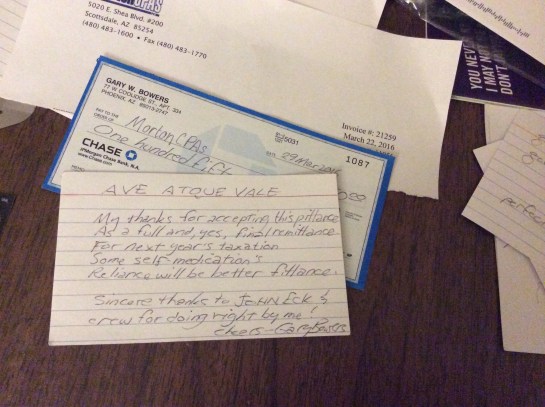 5020 E. Shea Blvd. #200
Scottsdale, AZ 85254
(480) 483-1600 • Fax (480) 483-1770
YOU NEV
I MAY NO
DON'T
Invoice #: 21259
March 22, 2016
GARY W. BOWERS
77 W COOLIDGE ST., APT. 224
PHOENIX, AZ 85013-2747
1087
DATE 29 Mar 20
PAY TO THE
ORDER OF Morton CPAs
One hundred fift
CHASE
JPMorgan Chase Bank, N.A.
www.Chase.com
perfec
AVE ATQUE VALE
My thanks for accepting this pittance
As a full and, yes, final remittance.
For next year's taxation
Some self-medication's
Reliance will be better fittance.
Sincere thanks to JOHN Eck &
crew for doing right by me!
Cheers - Gary Bowers